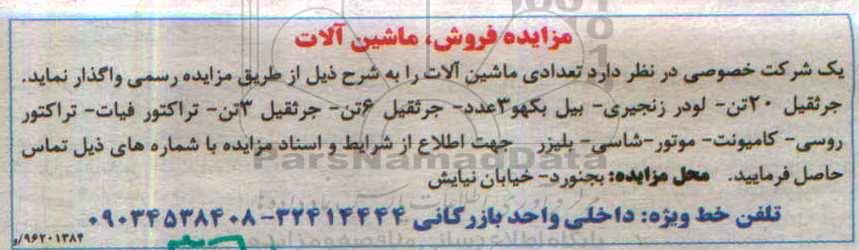 مزایده فروش، ماشین آلات
یک شرکت خصوصی در نظر دارد تعدادی ماشین آلات را به شرح ذیل از طریق مزایده رسمی واگذار نماید.
جرثقیل ۲۰تن- لودر زنجیری- بیل بکهو۳عدد- جرثقیل ۶تن- جرثقیل ۳تن- تراکتور فیات- تراکتور
روسی- کامیونت- موتور-شاسی- بلیزر جهت اطلاع از شرایط و اسناد مزایده با شماره های ذیل تماس
حاصل فرمایید. محل مزایده: بجنورد- خیابان نیایش
تلفن خط ویژه: داخلی واحد بازرگانی ۳۲۴۱۴۴۴۴-۰۹۰۳۴۵۳۸۴۰۸
۹۶۲۰۱۳۸۴/و
ParsNamadData